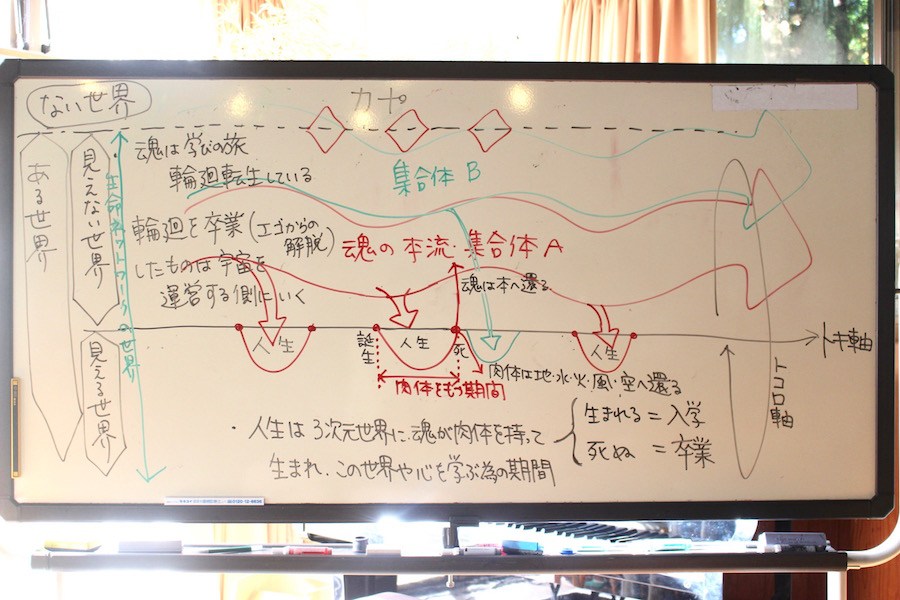 ない世界
カヤ
ある世界
見えない世界
生命ネットワークの世界
見える世界
魂は学びの旅
輪廻転生している
集合体 B
輪廻を卒業(エゴからの解脱)
したものは宇宙を
運営する側にいく
魂の本流・集合体A
魂は本へ還る
人生
誕生
人生
死
人生
トキ軸
トコロ軸
肉体は地・水・火・風・空へ還る
肉体をもつ期間
・人生は3次元世界に、魂が肉体を持って
生まれ、この世界や心を学ぶ為の期間
生まれる=入学
死ぬ=卒業